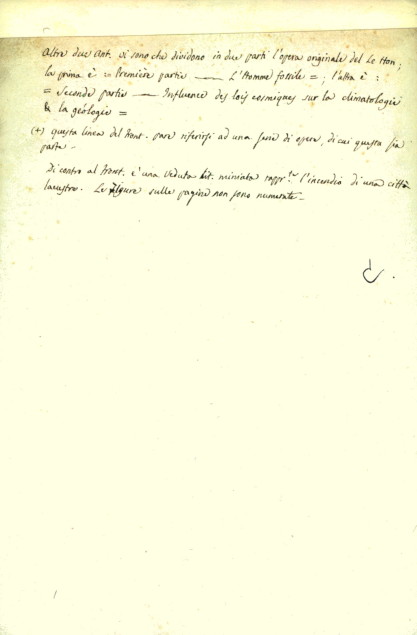 Altre due Ant. vi sono che dividono in due parti l'opera originale del Le Hon;
la prima è = Première partie — L'Homme fossile =; l'altra è:
= Seconde partie — Influence des lois cosmiques sur la climatologie
& la géologie =
(+) questa linea del Front. pare riferirsi ad una serie di opere, di cui questa sia
parte -
Di contro al Front. è una veduta lit. miniata rappr.te l'incendio di una città
lacustre. Le figure sulle pagine non sono numerate -